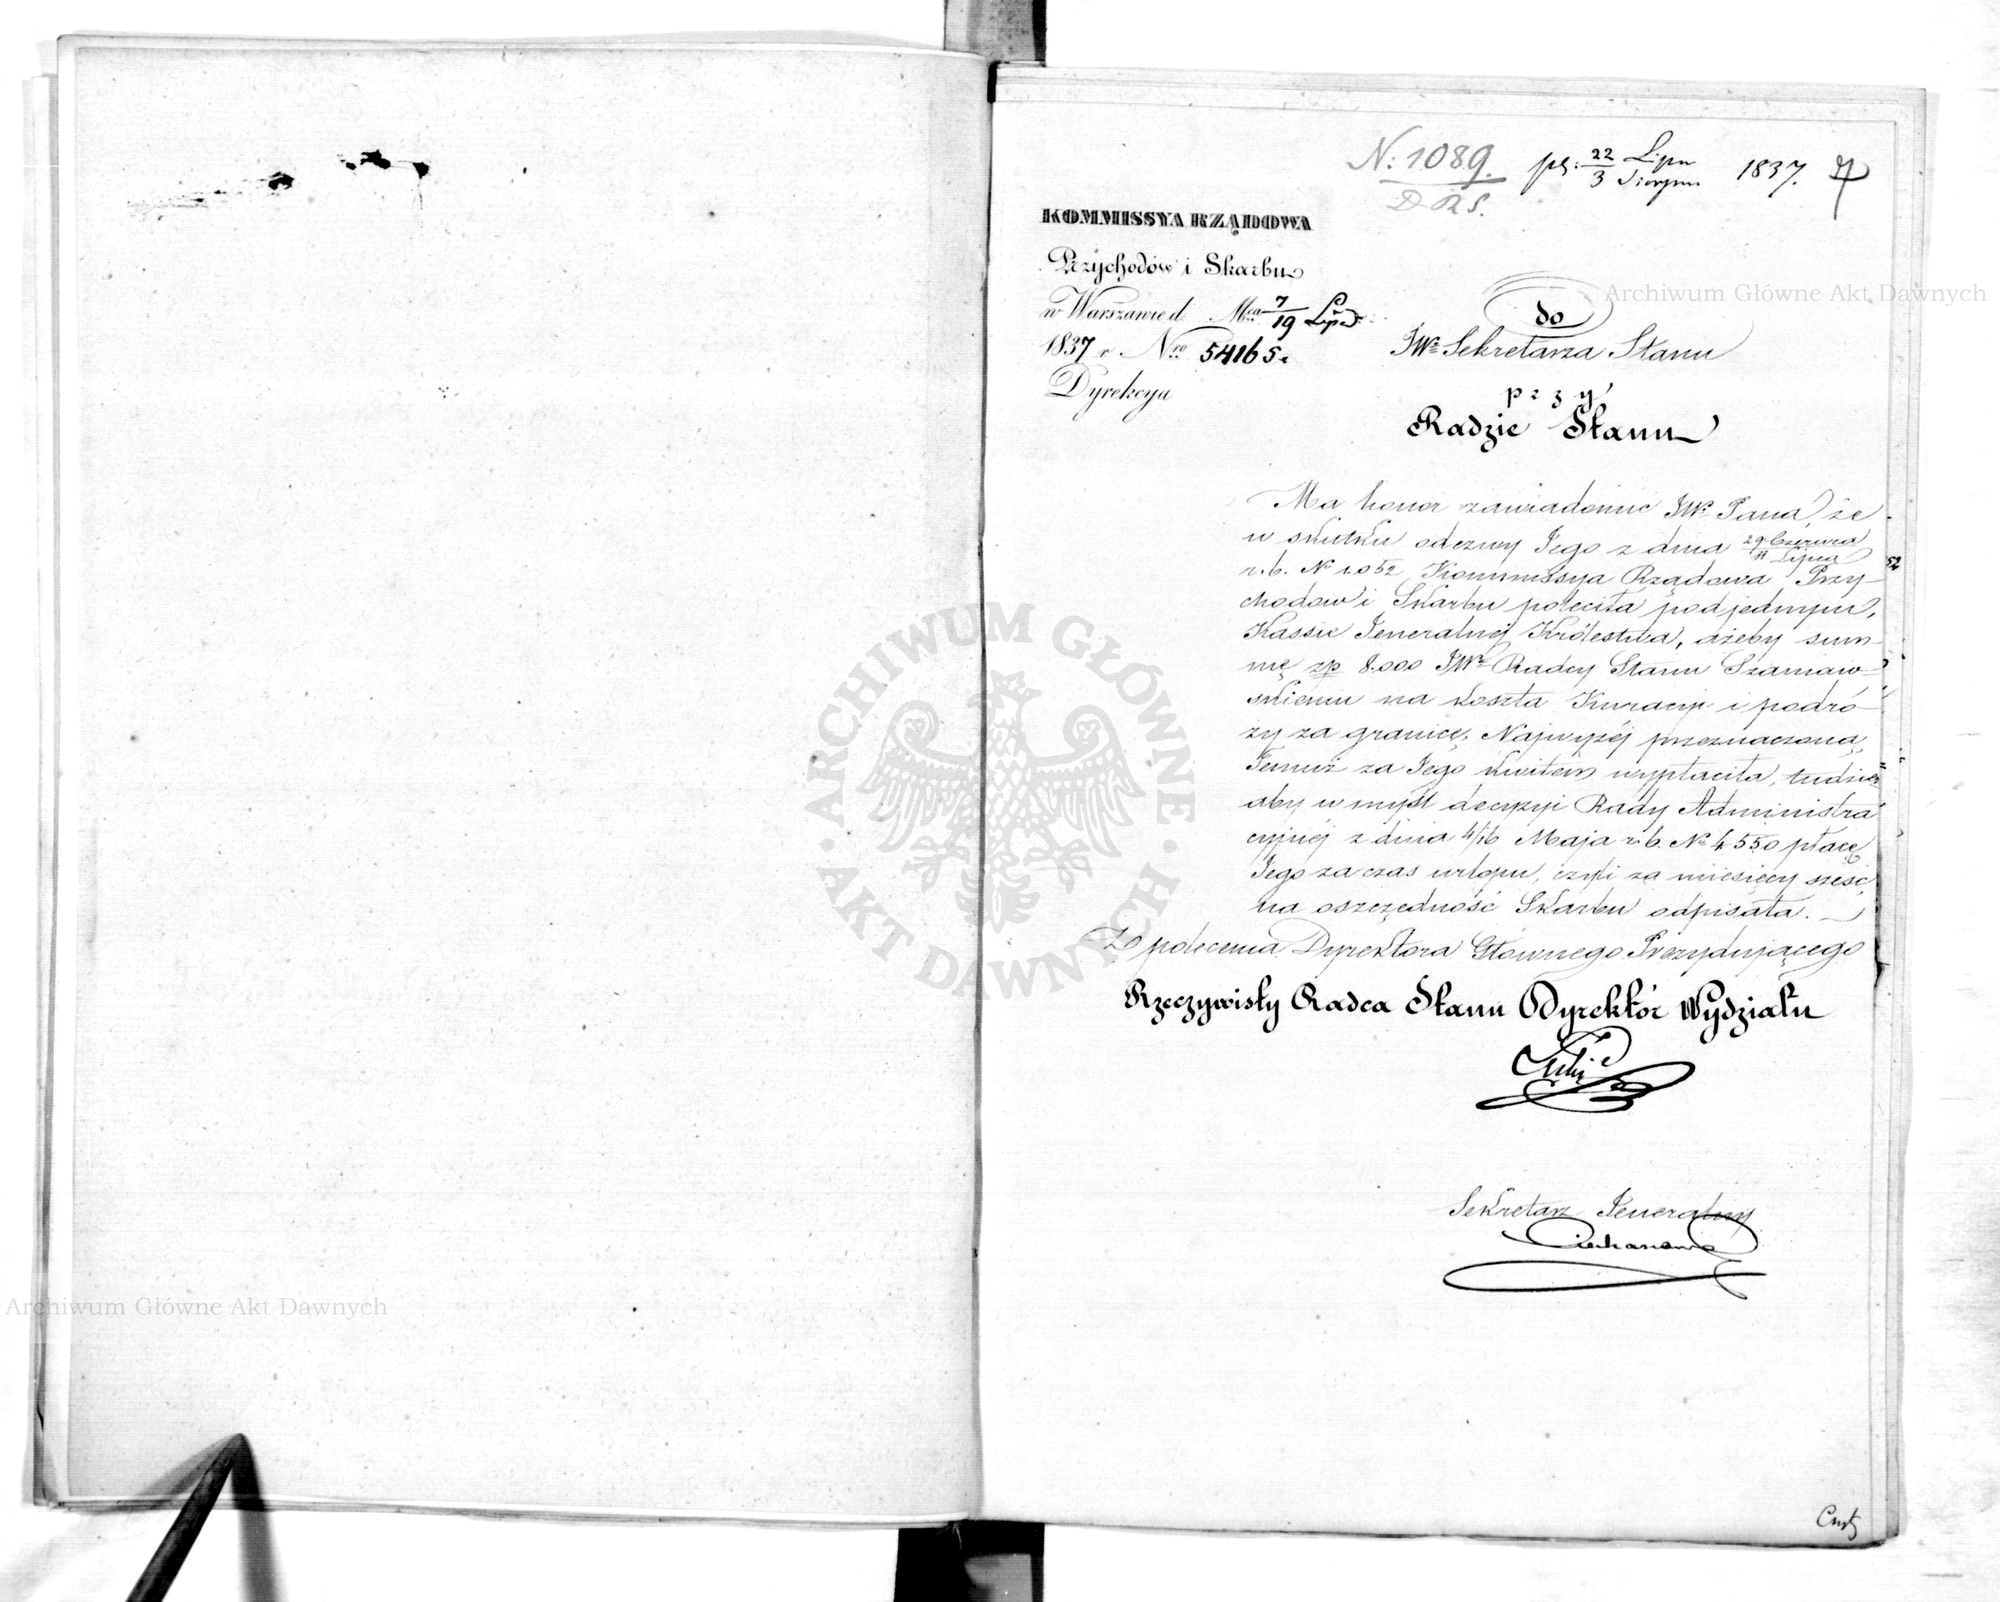 N: 1089. pł: 22/3 Lipca/Sierpnia 1837.
D R S.
KOMMISSYA RZĄDOWA
Przychodów i Skarbu
w Warszawie d. Mca 7/19 Lipca
1837 r Nro 54165.
Dyrekcya
do
JWo Sekretarza Stanu
przy
Radzie Stanu
Ma honor zawiadomić JWo Pana, że
w skutku odezwy Jego z dnia 29 Czerwca/11 Lipca
r. b. No 1052 Kommissya Rządowa Przy-
chodów i Skarbu poleciła pod jednym,
Kassie Jeneralnej Królestwa, ażeby sum-
mę zp 8.000 JWu Radcy Stanu Szaniaw-
skiemu na koszta Kuracyi i podró-
ży za granicę, Najwyżej przeznaczoną,
Temuż za Jego kwitem wypłaciła, tudzież
aby w myśl decyzyi Rady Administra
cyjnéj z dnia 4/16 Maja r. b. No 4550 płacę
Jego za czas urlopu, czyli za miesięcy sześć,
na oszczędność Skarbu odpisała.
Z polecenia Dyrektora Głównego Prezydującego
Rzeczywisty Radca Stanu Dyrektór Wydziału
Sekretarz Jeneralny
52
ARCHIWUM GŁÓWNE AKT DAWNYCH
Archiwum Główne Akt Dawnych
Archiwum Główne Akt Dawnych